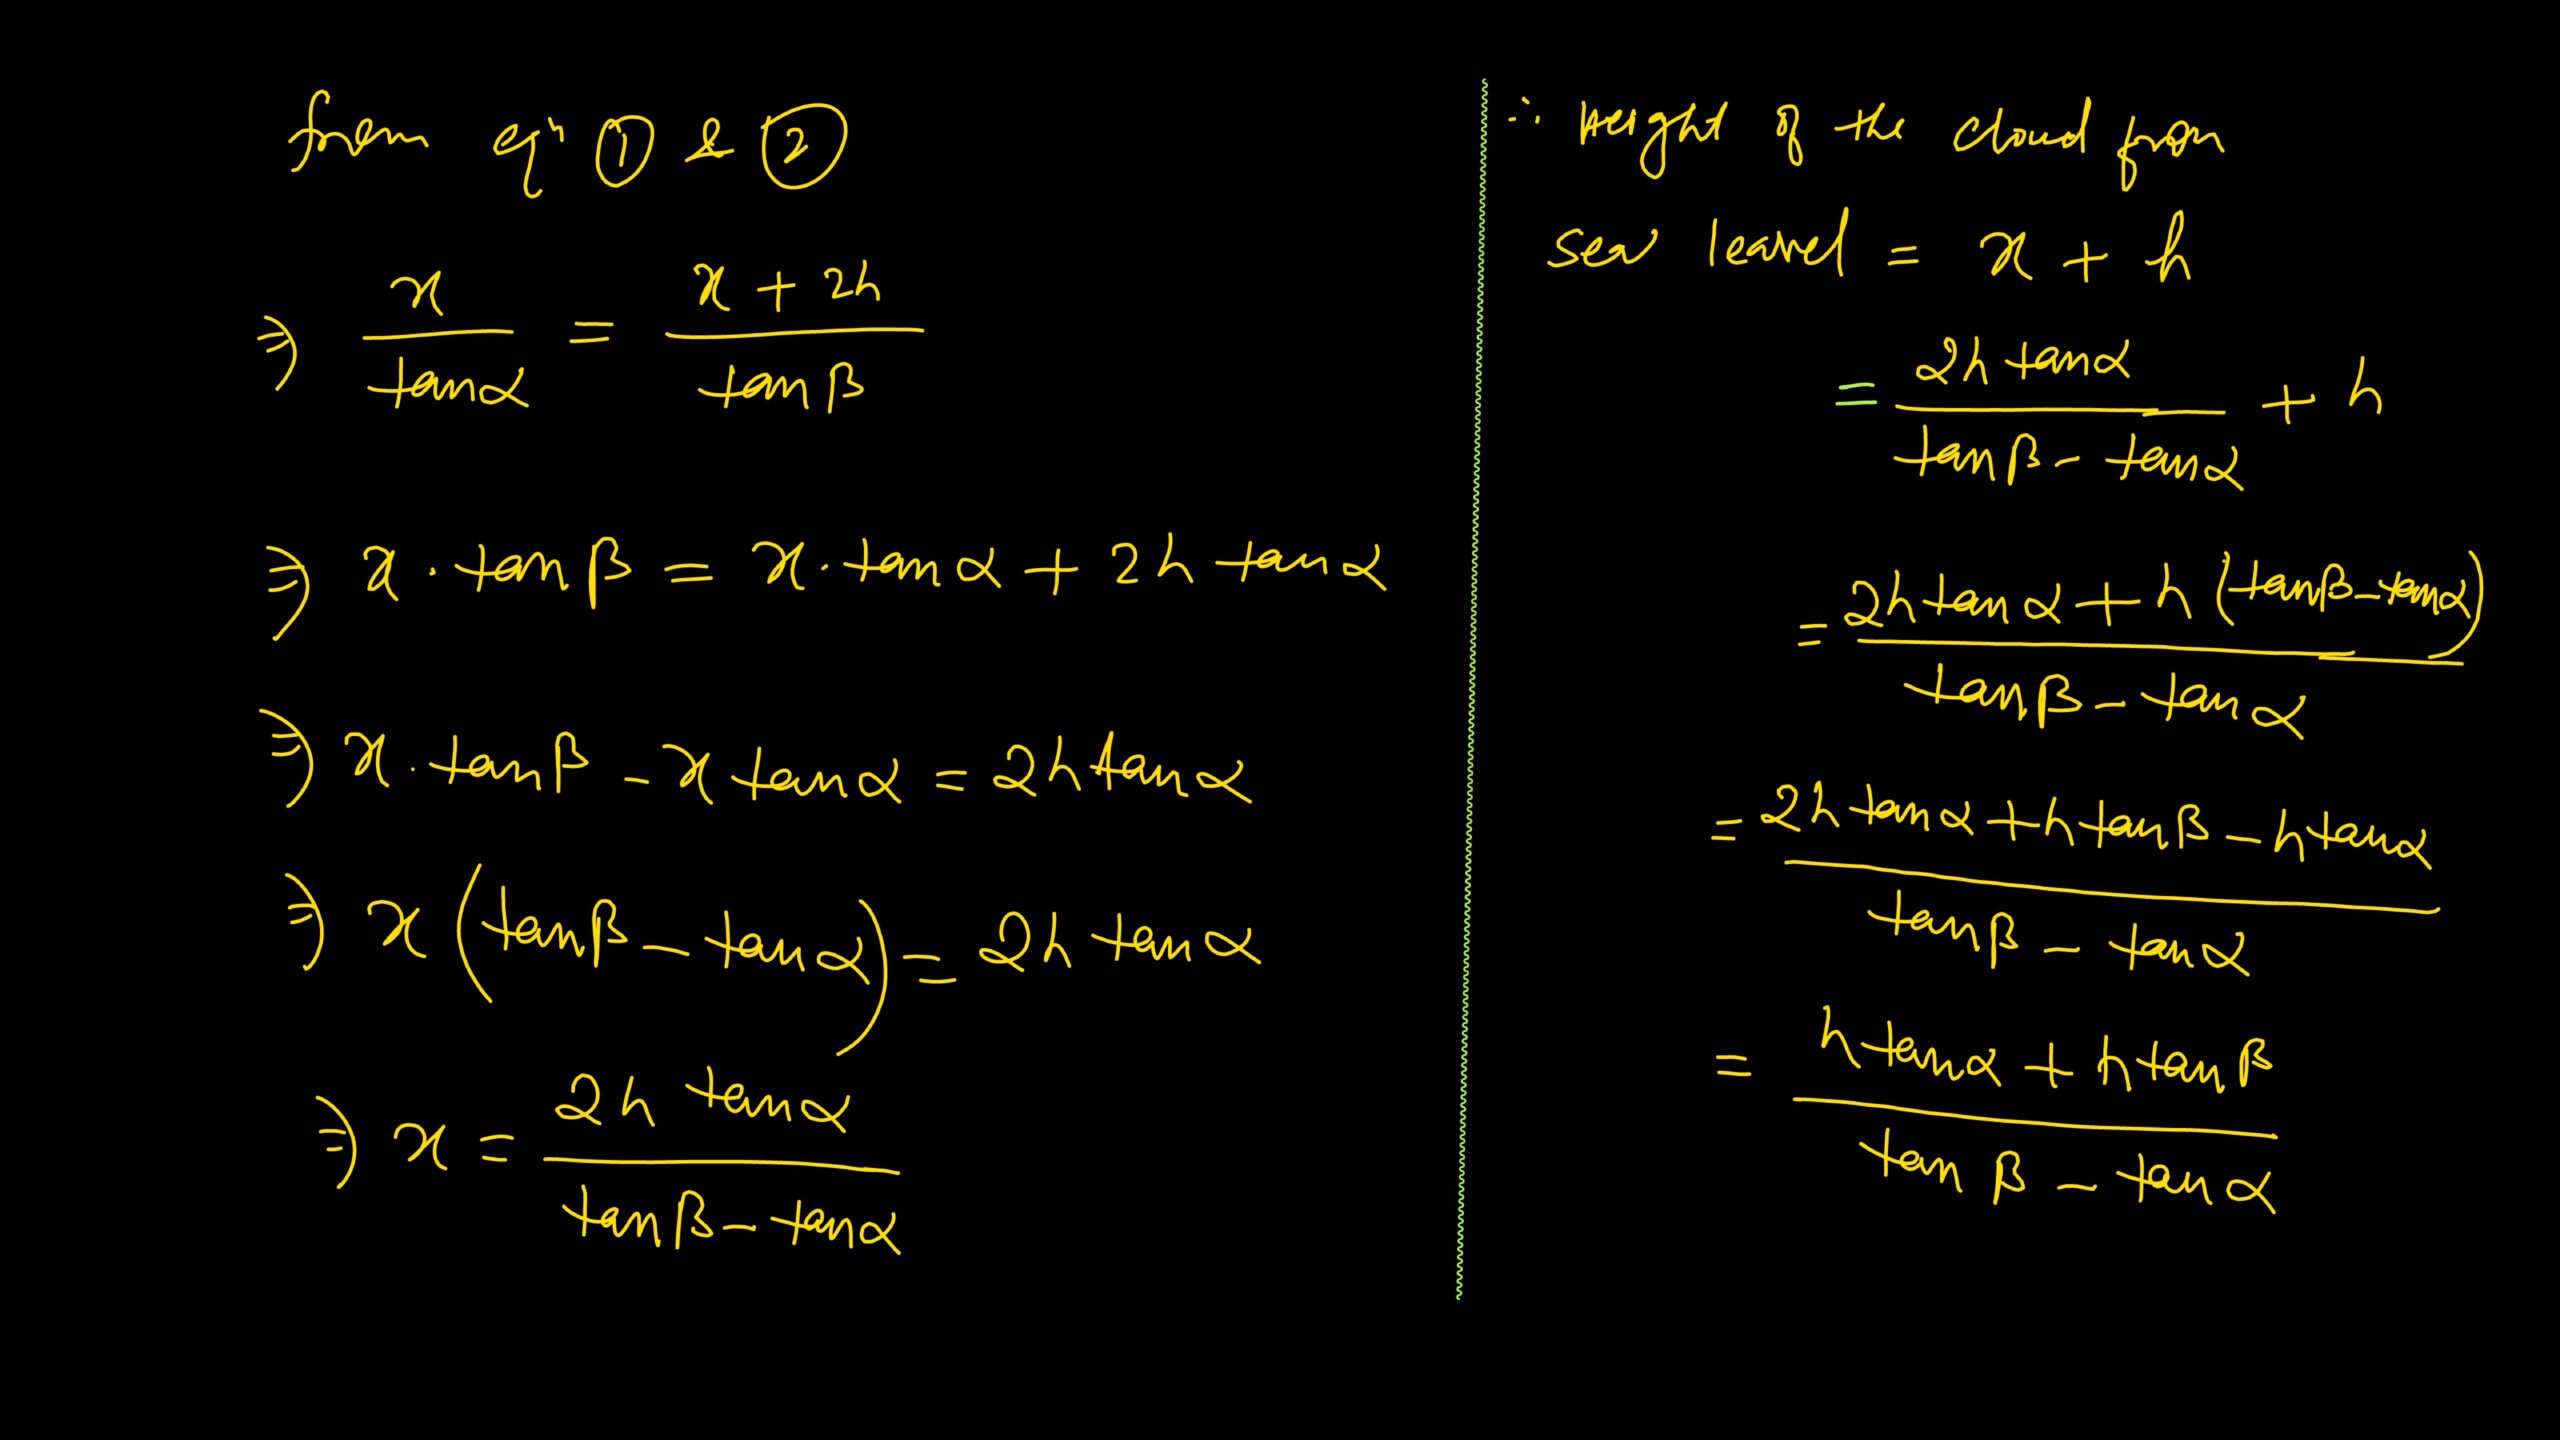 from eqⁿ ① & ②
⇒ x/tanα = (x + 2h)/tanβ
⇒ x · tanβ = x · tanα + 2h tanα
⇒ x · tanβ - x tanα = 2h tanα
⇒ x (tanβ - tanα) = 2h tanα
⇒ x = 2h tanα/(tanβ - tanα)
∴ Height of the cloud from
sea leavel = x + h
= 2h tanα/(tanβ - tanα) + h
= (2h tanα + h (tanβ - tanα))/(tanβ - tanα)
= (2h tanα + h tanβ - h tanα)/(tanβ - tanα)
= (h tanα + h tanβ)/(tanβ - tanα)